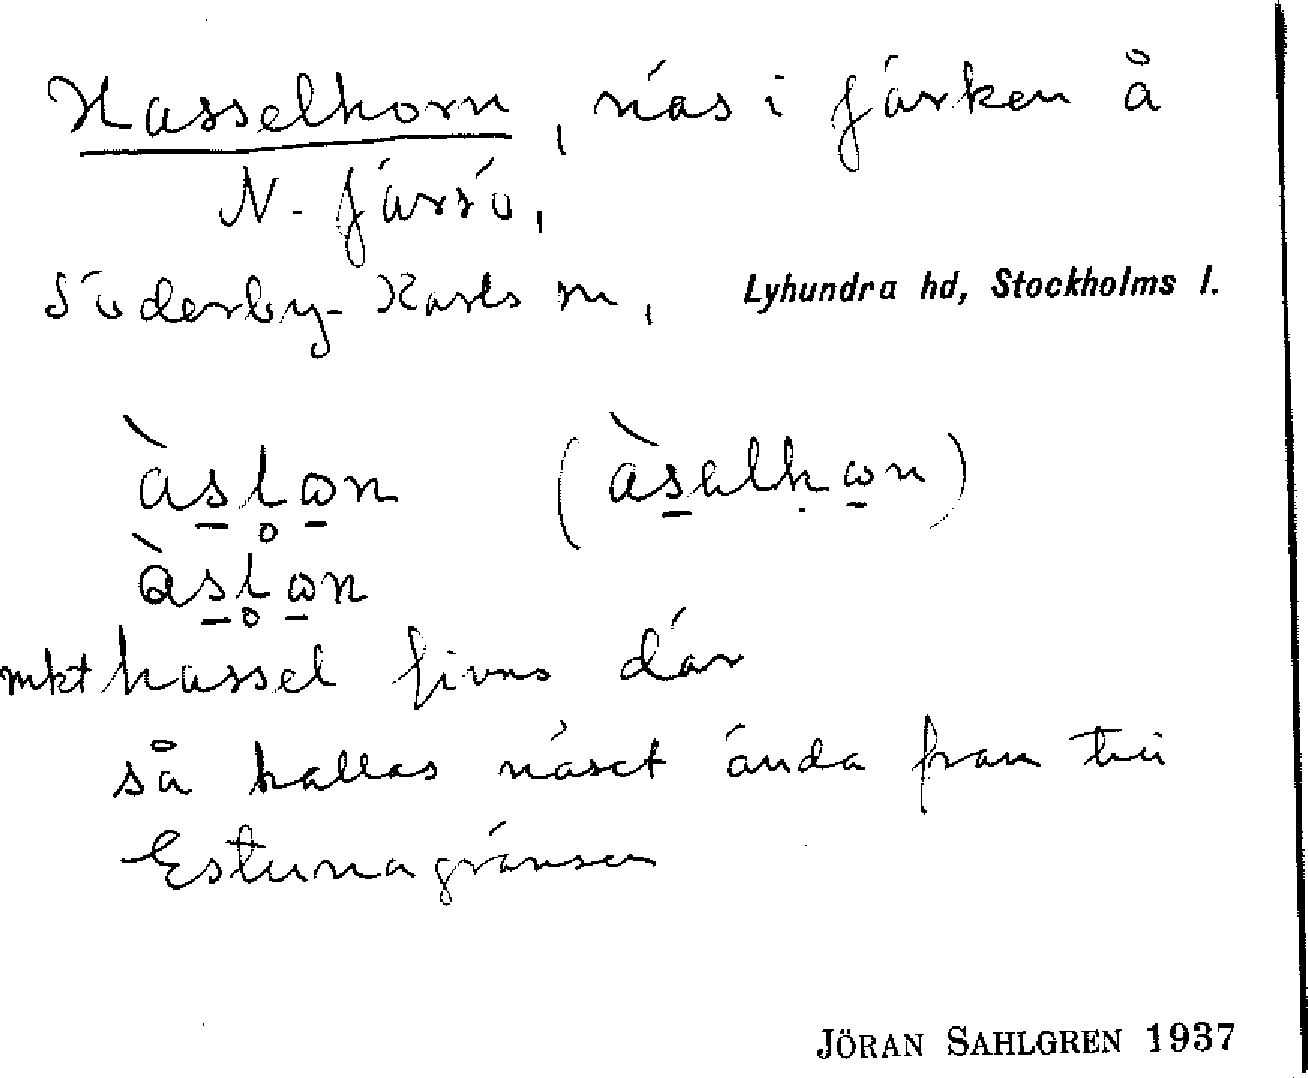 Hasselhorn, näs i fjärken å
N. Järsö,
Söderby-Karls sn, Lyhundra hd, Stockholms l.
àslɷn (àsəlhɷn)
àslɷn
mkt hassel finns där
så kallas näset ända fram till
Estunagränsen
JÖRAN SAHLGREN 1937